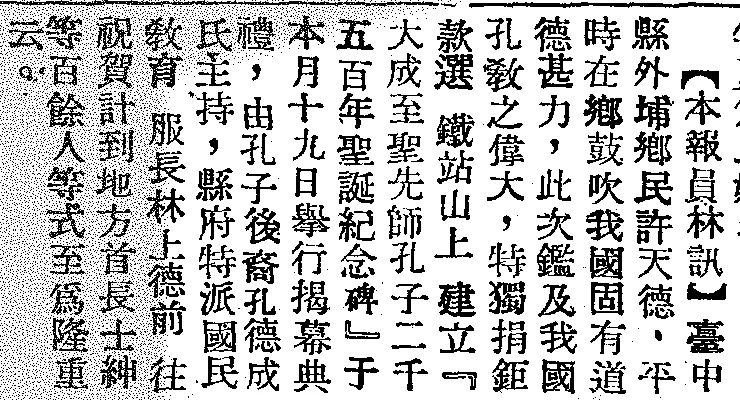 【本報員林訊】臺中
縣外埔鄉民許天德、平
時在鄉鼓吹我國固有道
德甚力，此次鑑及我國
孔教之偉大，特獨捐鉅
款選 鐵站山上 建立『
大成至聖先師孔子二千
五百年聖誕紀念碑』于
本月十九日舉行揭幕典
禮，由孔子後裔孔德成
氏主持，縣府特派國民
教育 服長林上德前 往
祝賀計到地方首長士紳
等百餘人等式至為隆重
云。